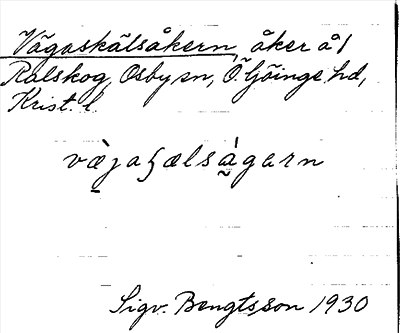 Vägaskälsåkern, åker å
Ralskog, Osby sn, Ö. Göinge hd,
Krist. l.
væ̀jaʃælságarn
Sigv. Bengtsson 1930